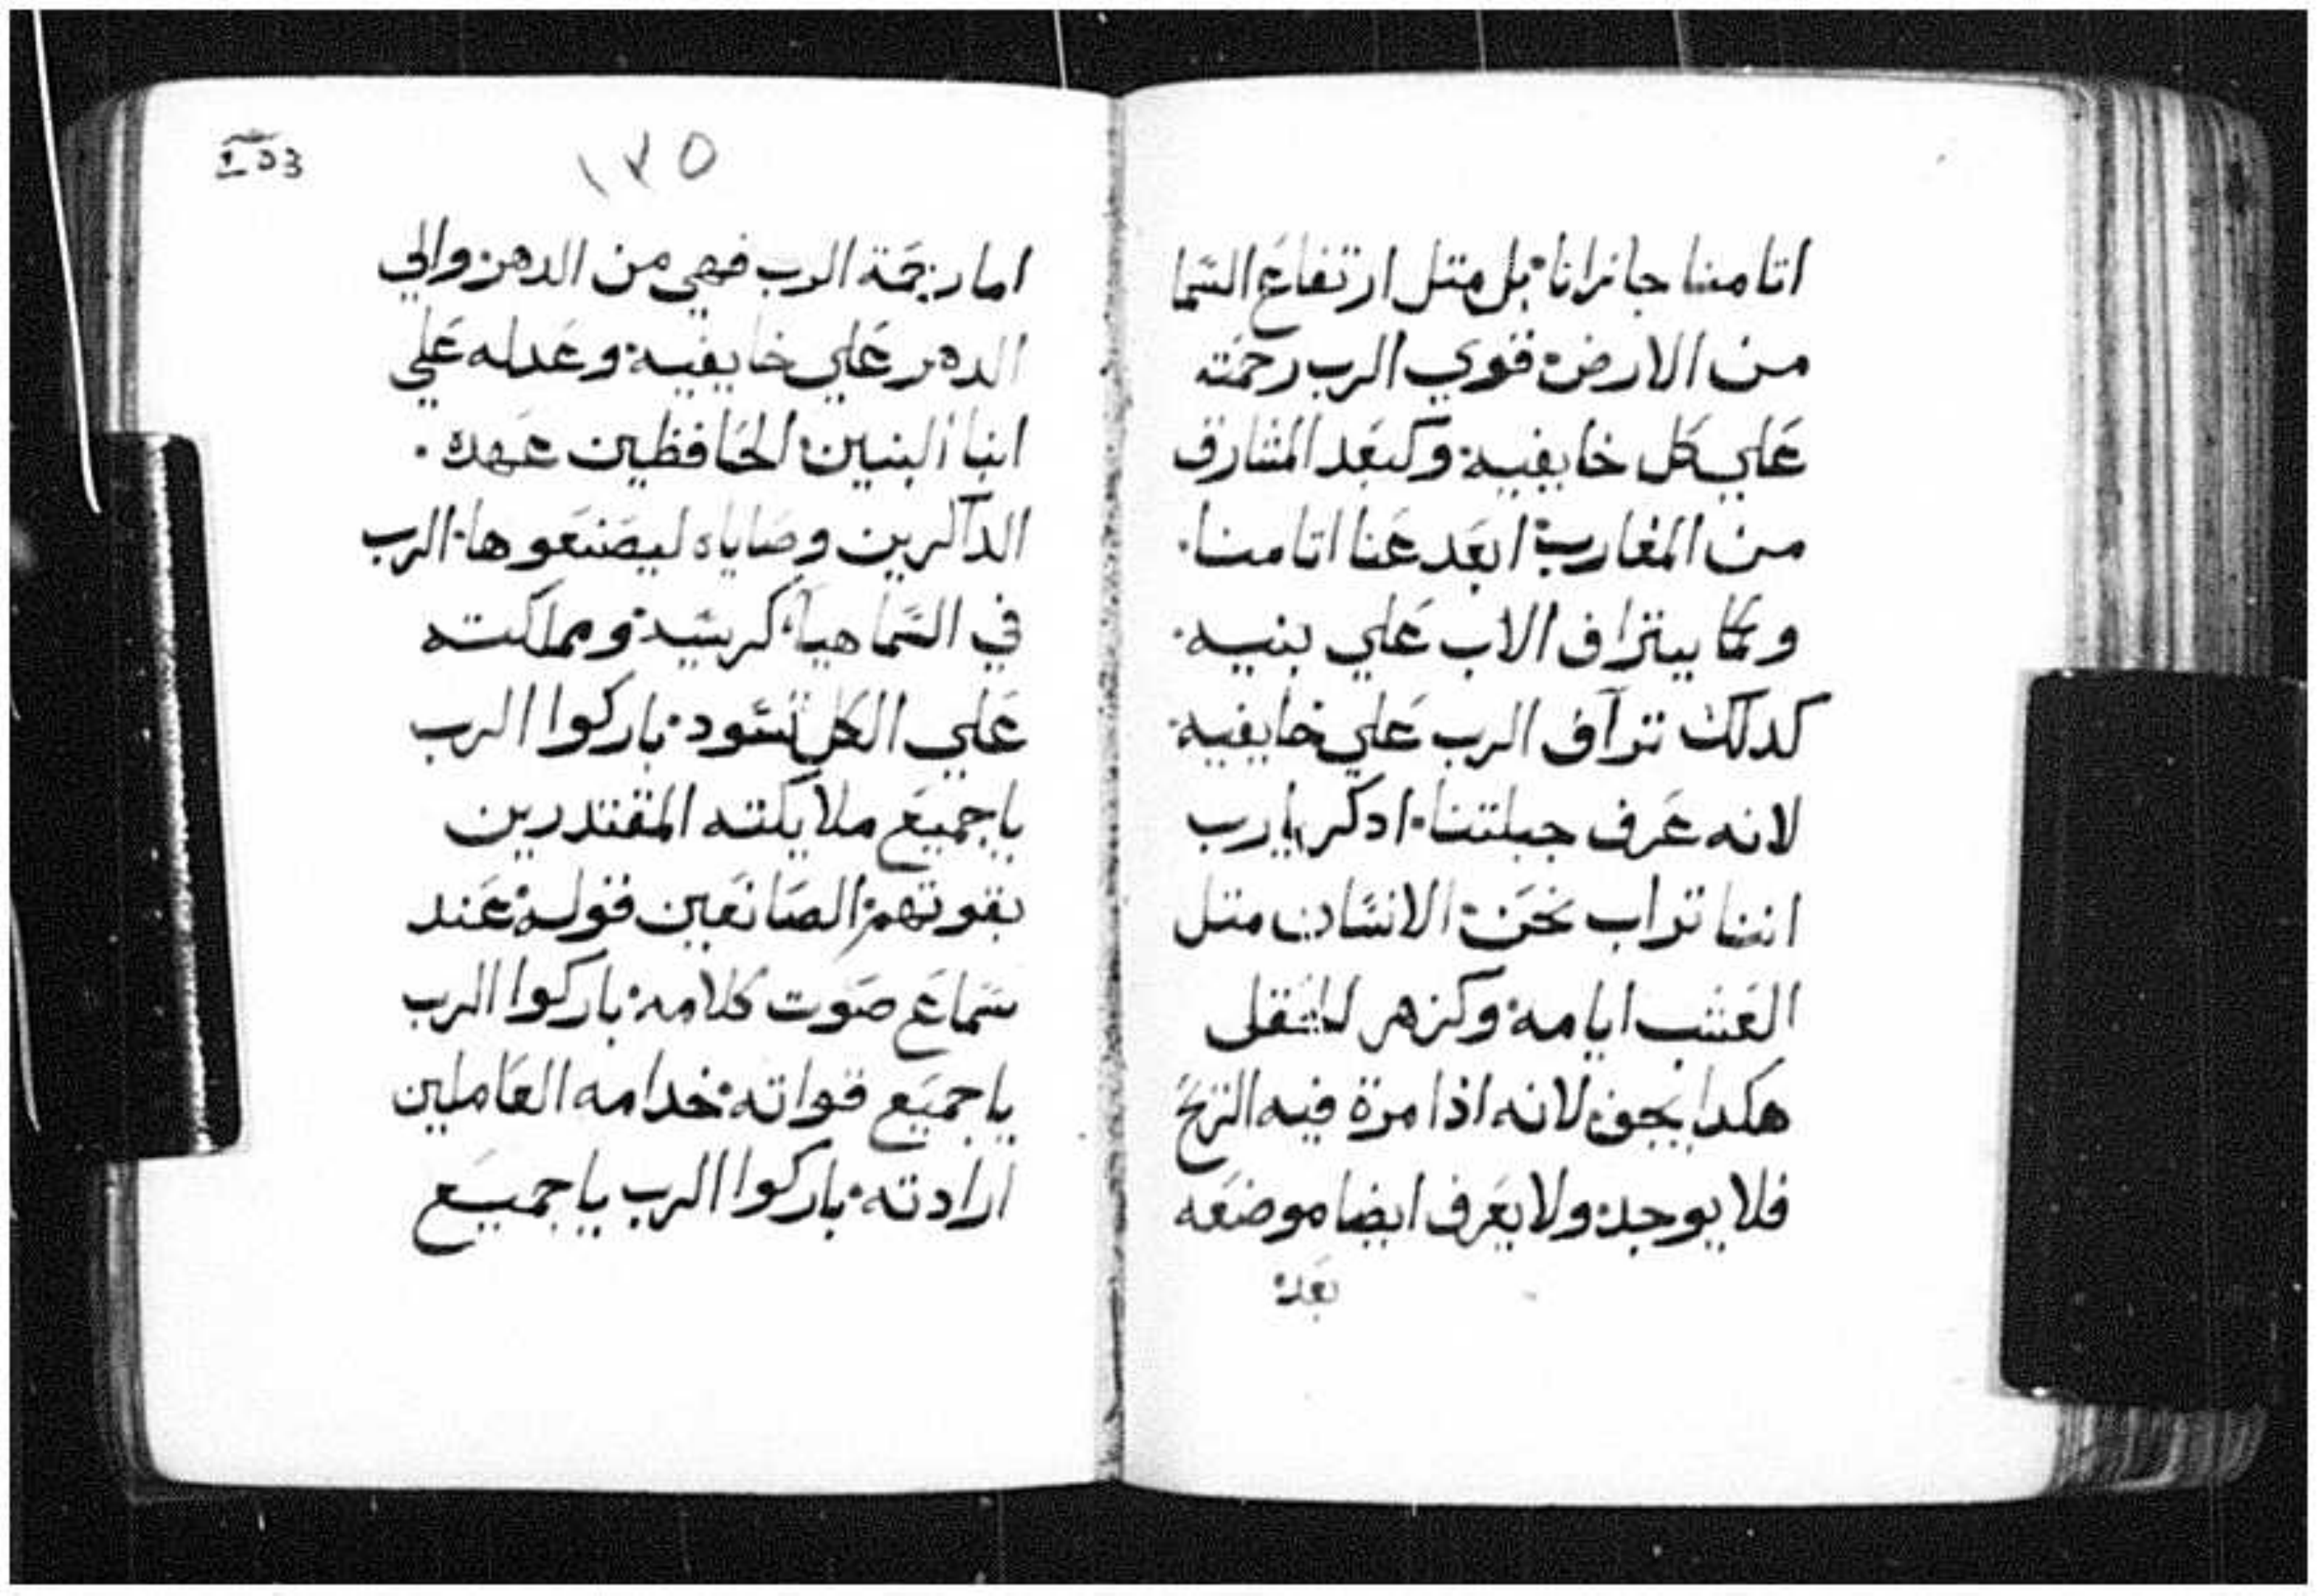 اتامنا جازانا. بل متل ارتفاع السما
من الارض. قوي الرب رحمته
علي كل خايفيه. وكبعد المشارق
من المغارب. ابعد عنا اتامنا.
وكما يتراف الاب علي بنيه.
كدلك تراف الرب علي خايفيه.
لانه عرف جبلتنا. ادكر يارب
اننا تراب نحن. الانسان متل
العشب ايامه. وكزهر
هكدا يجف. لانه اذا مرة فيه الريح
فلا يوجد. ولا يعرف ايضا موضعه
بعد.
١٣٥
اما رحمة الرب فهي من الدهر. والي
الدهر علي خايفيه. وعدله علي
ابنا البنين. الحافظين عهده.
الداكرين وصاياه ليصنعوها. الرب
في السما هيا كرسيه. ومملكته
علي الكل تسود. باركوا الرب
ياجميع ملايكته المقتدرين
بقوتهم. الصانعين قوله. عند
سماع صوت كلامه. باركوا الرب
ياجميع قواته. خدامه العاملين
ارادته. باركوا الرب ياجميع